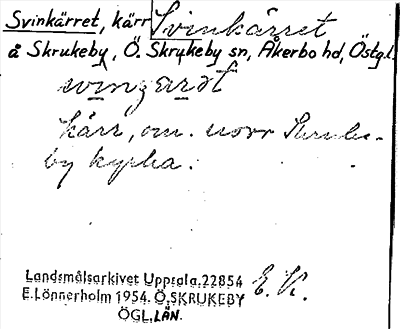 Svinkärret, kärr Svinkärret
å Skrukeby, Ö. Skrukeby sn, Åkerbo hd, Östgl.
svinʒarət
kärr, om. norr Skruke-
by kyrka.
Landsmålsarkivet Uppsala.22854 E. K.
E.Lönnerholm 1954. Ö.SKRUKEBY
ÖGL. LÄN.